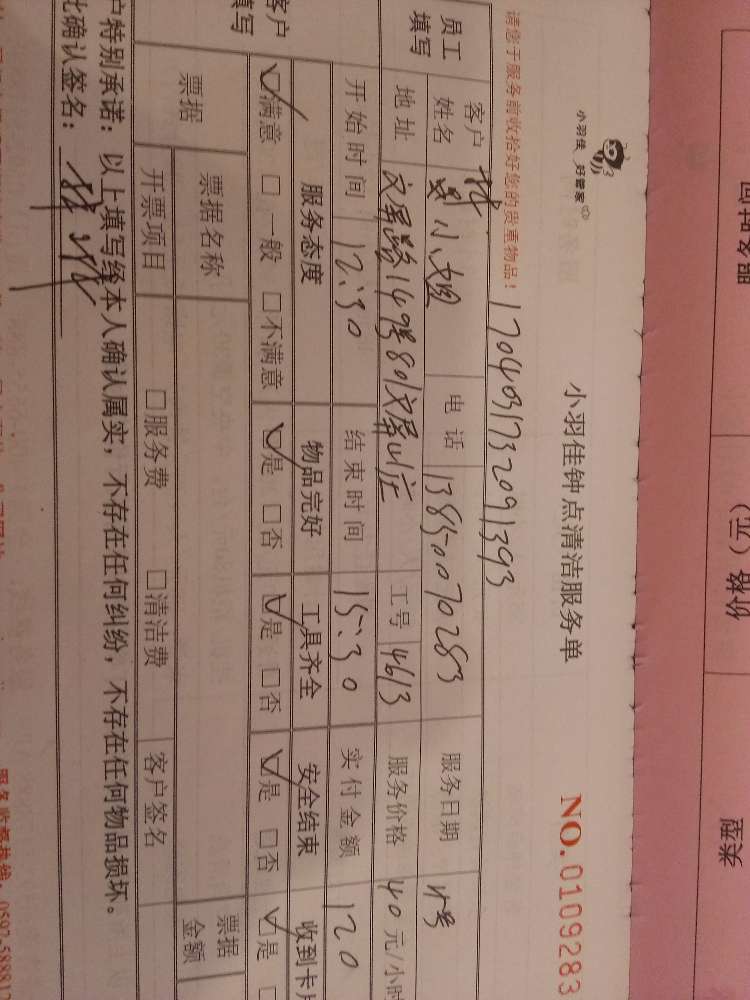 小羽佳 好管家
小羽佳钟点清洁服务单
NO.0109283
请您于服务前收拾好您的贵重物品！
1704031732091393
员工填写
客户姓名 小姐 电话 13850070283 服务日期
地址 文屏路149号801文屏山庄 工号 4613 服务价格 40 元/小时
开始时间 12:30 结束时间 15:30 实付金额 120
客户填写
服务态度 物品完好 工具齐全 安全结束 收到卡片
☑满意 □一般 □不满意 ☑是 □否 ☑是 □否 ☑是 □否 ☑是
票据
票据名称 票据金额
开票项目 □服务费 □清洁费 客户签名
户特别承诺：以上填写经本人确认属实，不存在任何纠纷，不存在任何物品损坏。
此确认签名：
价格（元）
类酒